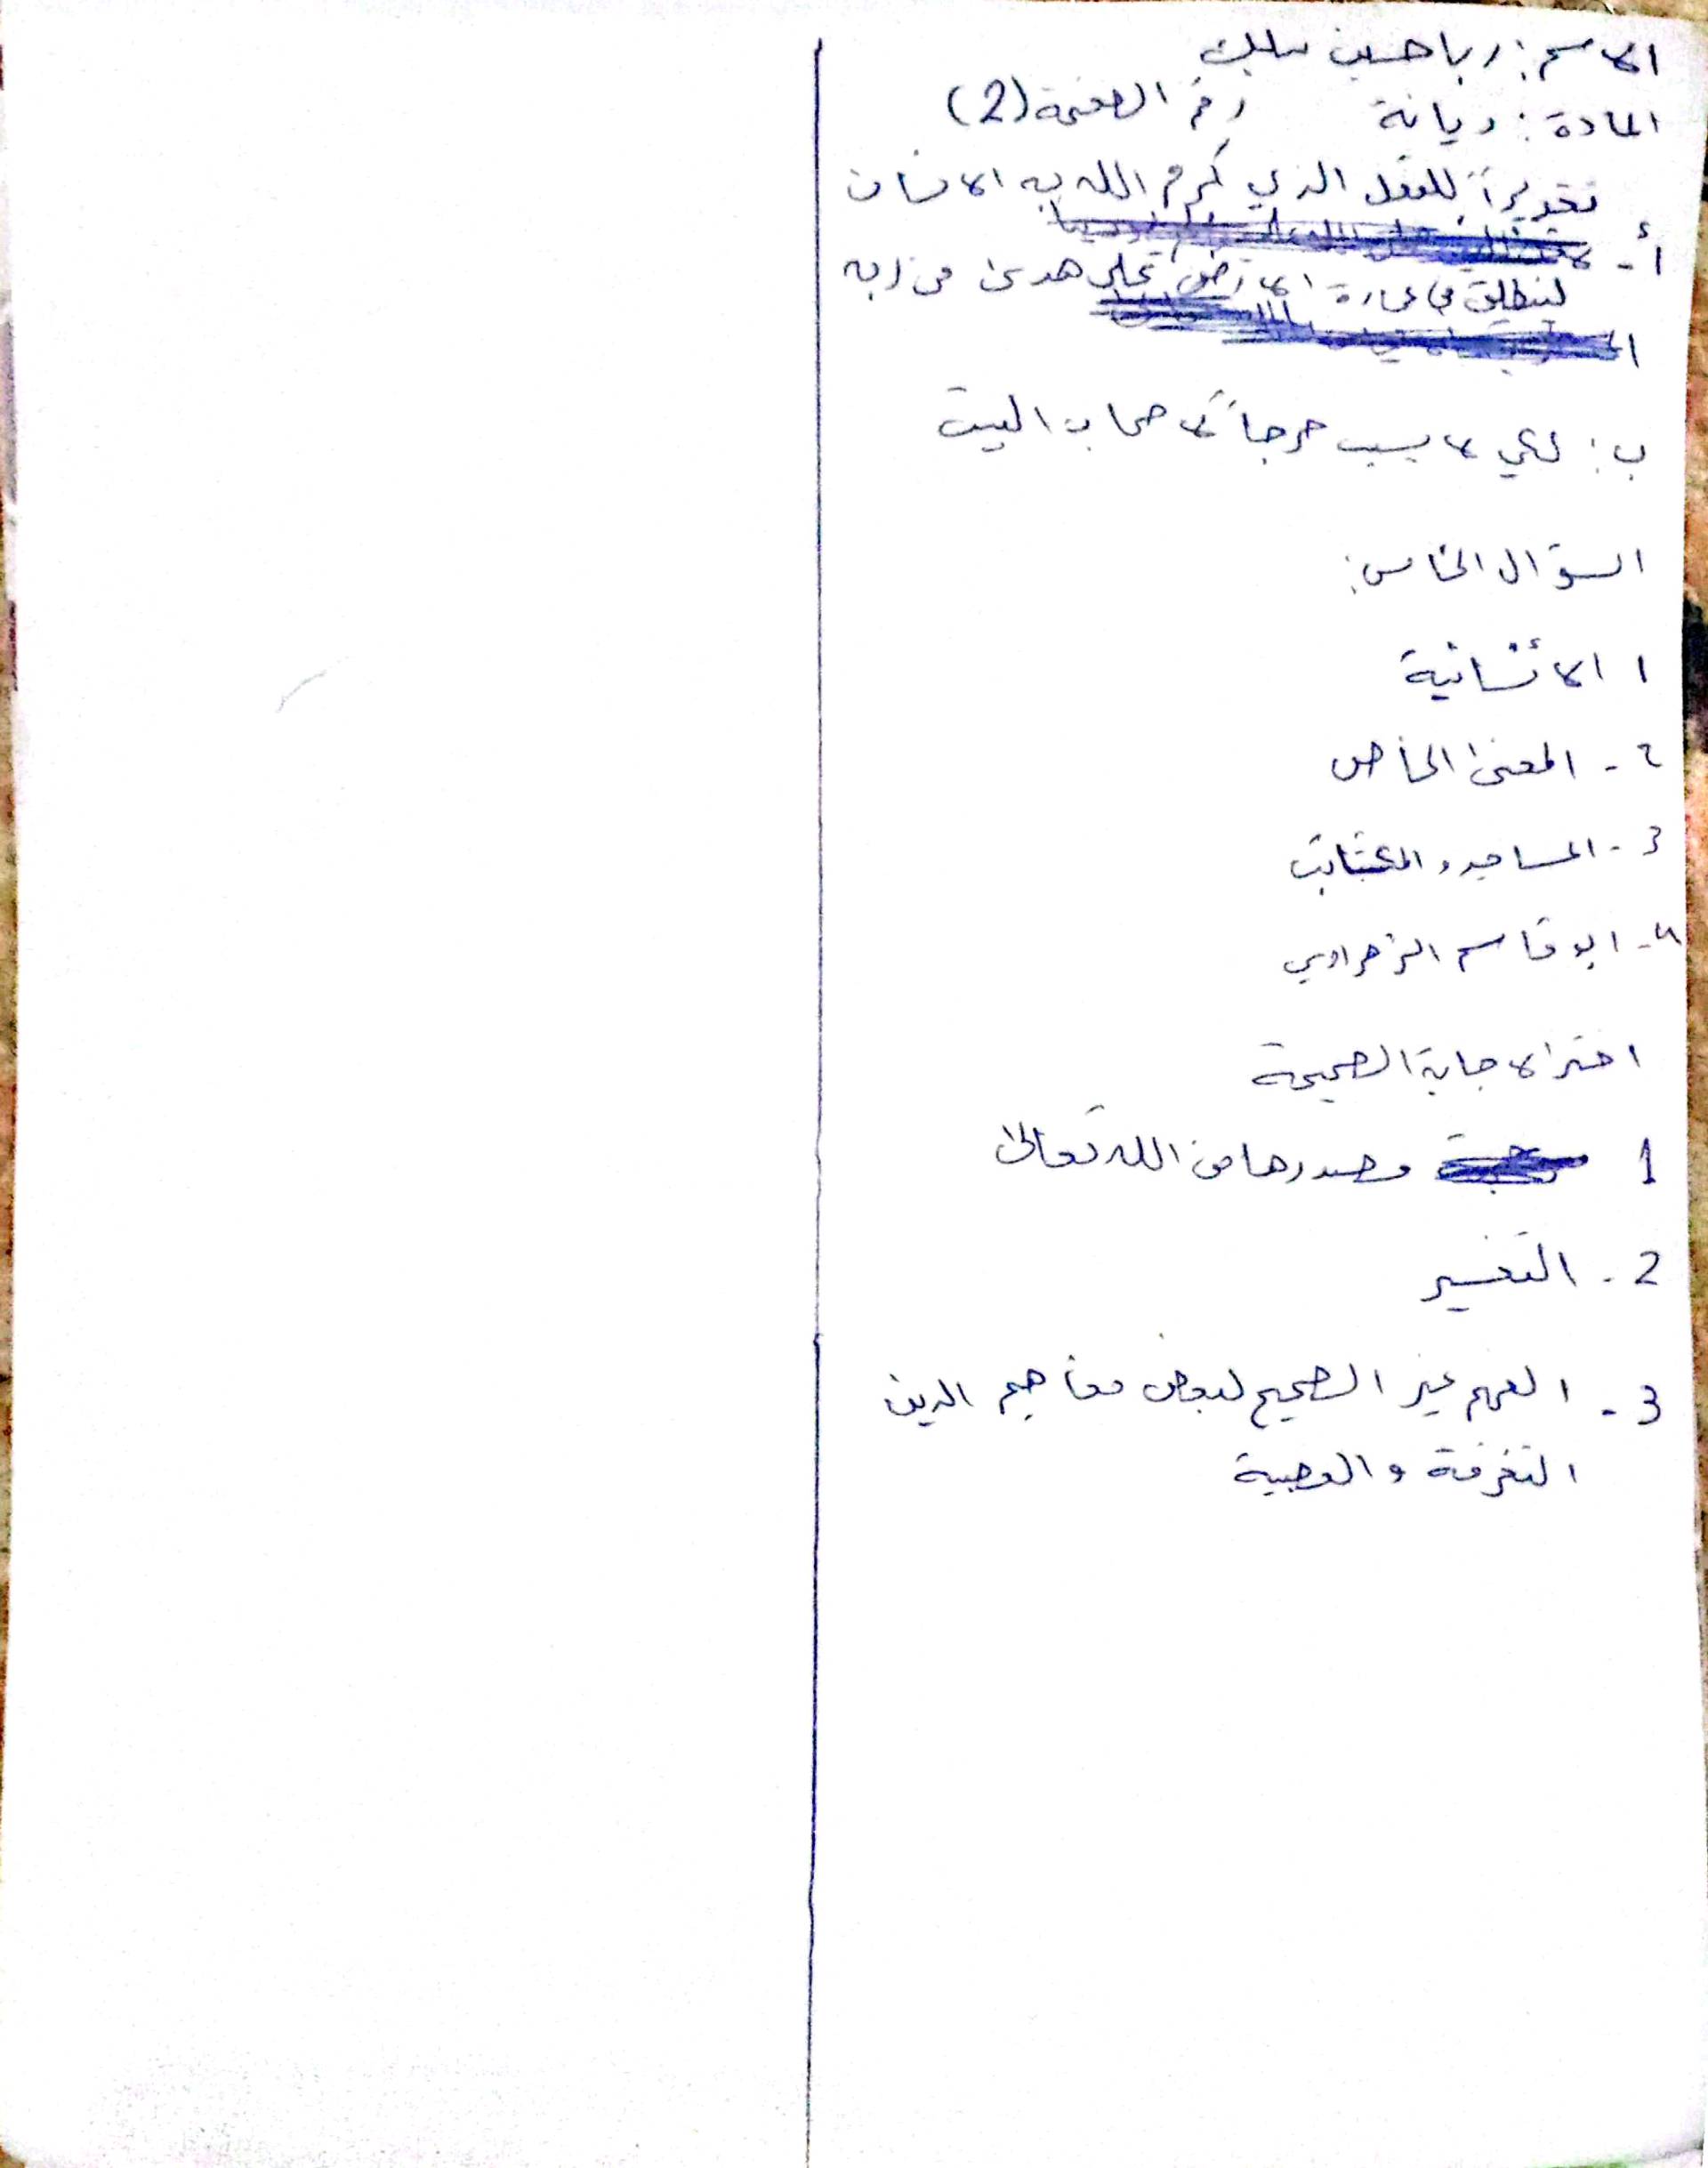 الاسم: ربا حسين
المادة: ديانة رقم الصفحة (2)
تقديراً للعقل الذي كرم الله به الانسان
أ-
لينطلق في عمارة الارض على هدى من ربه
ب: لكي لا يسبب حرجاً لاصحاب البيت
السؤال الخامس:
١ الأنسانية
٢- المعنى الخاص
٣- المساجد والكتاتيب
٤- ابو قاسم الزهراوي
اختر الاجابة الصحيحة
1 مصدرها من الله تعالى
2- التفسير
3- الفهم غير الصحيح لبعض مفاهيم الدين
التفرقة والعصبية